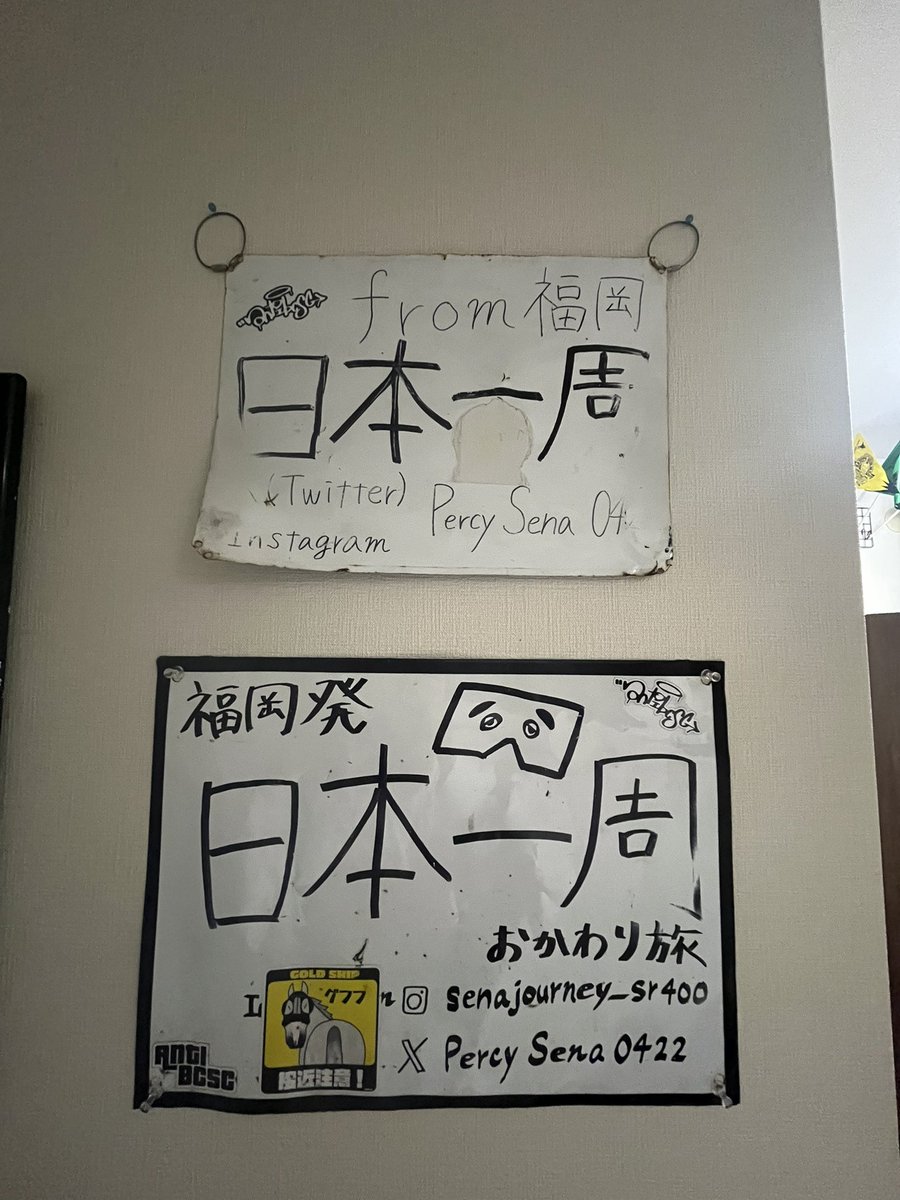 from 福岡
日本一周
(Twitter)
Instagram
Percy Sena 04
福岡発
日本一周
おかわり旅
GOLD SHIP
グフフ
接近注意！
senajourney_sr400
X Percy Sena 0422
ANTI
BCSC